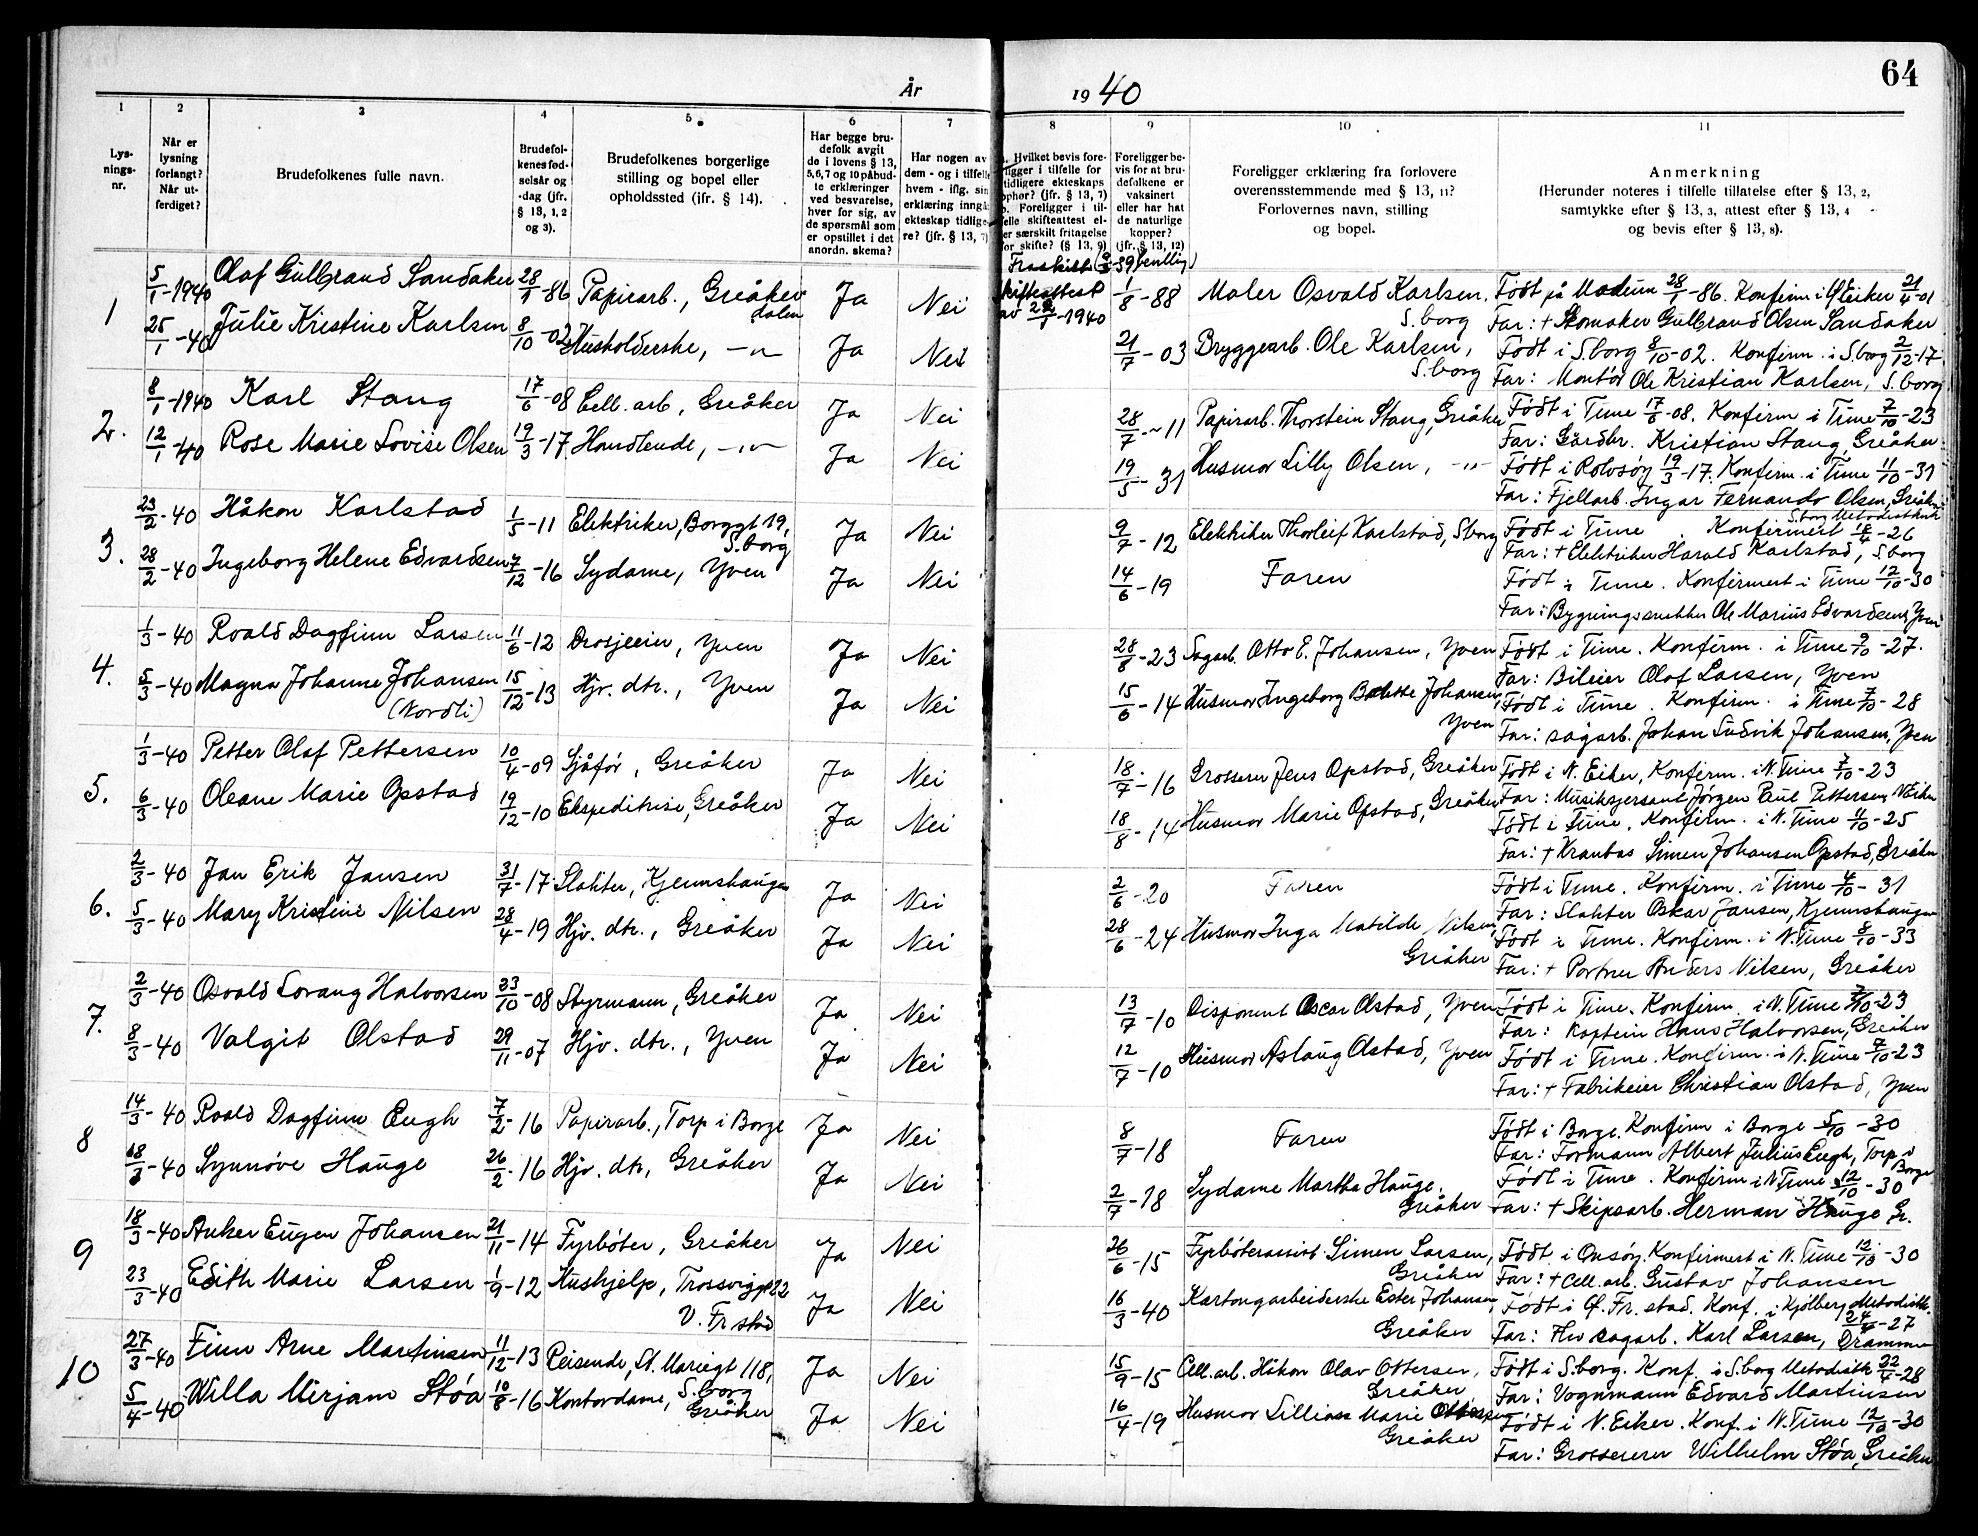 64
År 1940
1 2 3 4 5 6 7 8 9 10 11
Lysningsnr.
Når er lysning forlangt? Når utferdiget?
Brudefolkenes fulle navn.
Brudefolkenes fødselsår og -dag (jfr. § 13, 1, 2 og 3).
Brudefolkenes borgerlige stilling og bopel eller opholdssted (jfr. § 14).
Har begge brudefolk avgit de i lovens § 13, 5, 6, 7 og 10 påbudte erklæringer ved besvarelse, hver for sig, av de spørsmål som er opstillet i det anordn. skema?
Har nogen av dem - og i tilfelle hvem - iflg. sin erklæring inngå ekteskap tidligere? (jfr. § 13, 7)
Hvilket bevis foreligger i tilfelle for tidligere ekteskaps ophør? (jfr. § 13, 7) b. Foreligger i tilfelle skifteattest eller særskilt fritagelse for skifte? (§ 13, 9)
Foreligger bevis for at brudefolkene er vaksinert eller har hat de naturlige kopper? (jfr. § 13, 12)
Foreligger erklæring fra forlovere overensstemmende med § 13, 11? Forlovernes navn, stilling og bopel.
Anmerkning (Herunder noteres i tilfelle tillatelse efter § 13, 2, samtykke efter § 13, 3, attest efter § 13, 4 og bevis efter § 13, 8).
1 5/1-1940 Olaf Gulbrand Sandaker 28/1-86 Papirarb., Greåkerdalen Ja Nei
Skifteattest av 1940 1/8-88 Maler Osvald Karlsen, S.borg
Født på Modum 28/1-86. Konfirm i Ø. Eiker 21/4-01
Far: + Skomaker Gulbrand Olsen Sandaker
25/1-40 Julie Kristine Karlsen 8/10-02 Husholderske, -"- Ja Nei
21/7-03 Bryggearb. Ole Karlsen, S.borg
Født i S.borg 8/10-02. Konfirm. i S.borg 2/12-17
Far: Montør Ole Kristian Karlsen, S.borg
2. 8/1-1940 Karl Stang 17/6-08 Cell. arb, Greåker Ja Nei
28/7-11 Papirarb. Thorstein Stang, Greåker
Født i Tune 17/6-08. Konfirm i Tune 7/10-23
Far: Gårdbr. Kristian Stang, Greåker
12/1-40 Rose Marie Lovise Olsen 19/3-17 Handlende, -"- Ja Nei
19/5-31 Husmor Lilly Olsen, -"-
Født i Rolvsøy 19/3-17. Konfirm. i Tune 11/10-31
Far: Fjellarb. Ingar Fernando Olsen, Greåker
3. 23/2-40 Håkon Karlstad 1/5-11 Elektriker, Borggt 19, S.borg Ja Nei
9/7-12 Elektriker Thorleif Karlstad, Sborg
Født i Tune. Konfirmert S.borg Metodistkirk 18/4-26
Far: + Elektriker Harald Karlstad, S.borg
28/2-40 Ingeborg Helene Edvardsen 7/12-16 Sydame, Yven Ja Nei
14/6-19 Faren
Født i Tune. Konfirmert i Tune 12/10-30
Far: Bygningssnekker Ole Marius Edvardsen, Yven
4. 1/3-40 Roald Dagfinn Larsen 11/6-12 Drosjeeier, Yven Ja Nei
28/8-23 Sagarb. Otto E. Johansen, Yven
Født i Tune. Konfirm. i Tune 9/10-27.
Far: Bileier Olaf Larsen, Yven
5/3-40 Magna Johanne Johansen (Nordli) 15/12-13 Hjv. dtr., Yven Ja Nei
15/6-14 Husmor Ingeborg Johansen, Yven
Født i Tune. Konfirm. i Tune 7/10-28
Far: sagarb. Johan Ludvik Johansen, Yven
5. 1/3-40 Petter Olaf Pettersen 10/4-09 Sjåfør, Greåker Ja Nei
18/7-16 Grosserer Jens Opstad, Greåker
Født i N. Eiker, Konfirm. i N. Tune 7/10-23
Far: Musiksjersant Jørgen Paul Pettersen, N. Eiker
6/3-40 Oleane Marie Opstad 19/12-10 Ekspeditrise, Greåker Ja Nei
18/8-14 Husmor Marie Opstad, Greåker
Født i Tune. Konfirm. i N. Tune 11/10-25
Far: + Kranbas Simen Johansen Opstad, Greåker
6. 2/3-40 Jan Erik Jansen 31/7-17 Slakter, Kjennshaugen Ja Nei
2/6-20 Faren
Født i Tune. Konfirm. i Tune 4/10-31
Far: Slakter Oskar Jansen, Kjennshaugen
5/3-40 Mary Kristine Nilsen 28/4-19 Hjv. dtr., Greåker Ja Nei
28/6-24 Husmor Inga Matilde Nilsen, Greåker
Født i Tune. Konfirm. i N. Tune 8/10-33
Far: + Portner Anders Nilsen, Greåker
7. 2/3-40 Osvald Lorang Halvorsen 23/10-08 Styrmann, Greåker Ja Nei
13/7-10 Disponent Oscar Olstad, Yven
Født i Tune. Konfirm. i N. Tune 7/10-23
Far: Kaptein Hans Halvorsen, Greåker
8/3-40 Valgit Olstad 29/11-07 Hjv. dtr., Yven Ja Nei
12/7-10 Husmor Aslaug Olstad, Yven
Født i Tune. Konfirm. i N. Tune 7/10-23
Far: + Fabrikeier Christian Olstad, Yven
8 14/3-40 Roald Dagfinn Eugh 7/2-16 Papirarb., Torp i Borge Ja Nei
8/7-18 Faren
Født i Borge. Konfirm i Borge 5/10-30
Far: Formann Albert Julius Eugh, Torp i Borge
18/3-40 Synnøve Hauge 26/2-16 Hjv. dtr, Greåker Ja Nei
2/7-18 Sydame Martha Hauge. Greåker
Født i Tune. Konfirm i N. Tune 12/10-30
Far: + Skipsarb. Herman Hauge Gr.
9 18/3-40 Anker Eugen Johansen 21/11-14 Fyrbøter, Greåker Ja Nei
26/6-15 Fyrbøterassist. Simen Larsen, Greåker
Født i Onsøy. Konfirmert i N. Tune 12/10-30
Far: + Cell. arb. Gustav Johansen
23/3-40 Edith Marie Larsen 1/9-12 Hushjelp, Trosviggt 22 V. Fr.stad Ja Nei
16/3-40 Kartongarbeiderske Ester Johansen, Greåker
Født i Gl. Fr. stad. Konf. i Kjølberg Metodistk. 24/4-27
Far: Hv sagarb. Karl Larsen, Drammen
10 27/3-40 Finn Arne Martinsen 11/12-13 Reisende, St. Mariegt 118, S.borg Ja Nei
15/9-15 Cell. arb. Håkon Olav Ottersen, Greåker
Født i S.borg. Konf. i S.borg Metodistk 22/4-28
Far: Vognmann Edvard Martinsen
5/4-40 Willa Mirjam Støa 10/8-16 Kontordame, Greåker Ja Nei
16/4-19 Husmor Lillian Marie Ottersen Greåker
Født i N. Eiker. Konf. i N. Tune 12/10-30
Far: Grosserer Wilhelm Støa, Greåker